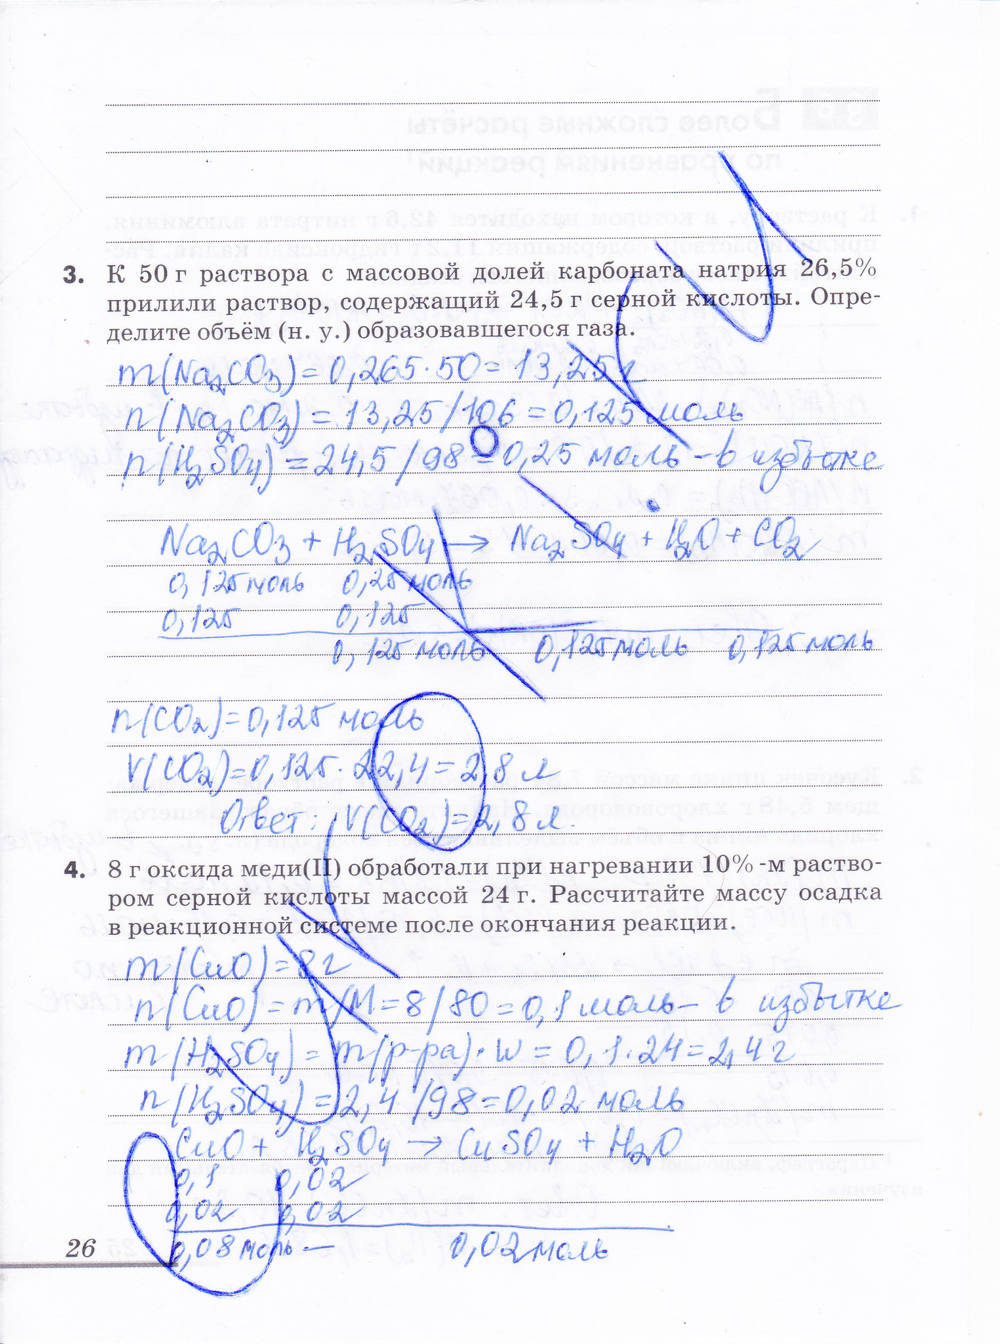 3. К 50 г раствора с массовой долей карбоната натрия 26,5%
прилили раствор, содержащий 24,5 г серной кислоты. Опре-
делите объём (н. у.) образовавшегося газа.
m(Na₂CO₃)=0,265·50=13,25 г
n(Na₂CO₃)=13,25/106=0,125 моль
n(H₂SO₄)=24,5/98=0,25 моль – в избытке
Na₂CO₃ + H₂SO₄ → Na₂SO₄ + H₂O + CO₂
0,125 моль 0,25 моль
0,125 0,125
0,125 моль 0,125 моль 0,125 моль
n(CO₂)=0,125 моль
V(CO₂)=0,125·22,4=2,8 л
Ответ: V(CO₂)=2,8 л.
4. 8 г оксида меди(II) обработали при нагревании 10%-м раство-
ром серной кислоты массой 24 г. Рассчитайте массу осадка
в реакционной системе после окончания реакции.
m(CuO)=8 г
n(CuO)=m/M=8/80=0,1 моль – в избытке
m(H₂SO₄)=m(р-ра)·w=0,1·24=2,4 г
n(H₂SO₄)=2,4/98=0,02 моль
CuO + H₂SO₄ → CuSO₄ + H₂O
0,1 0,02
0,02 0,02
0,08 моль – 0,02 моль
26